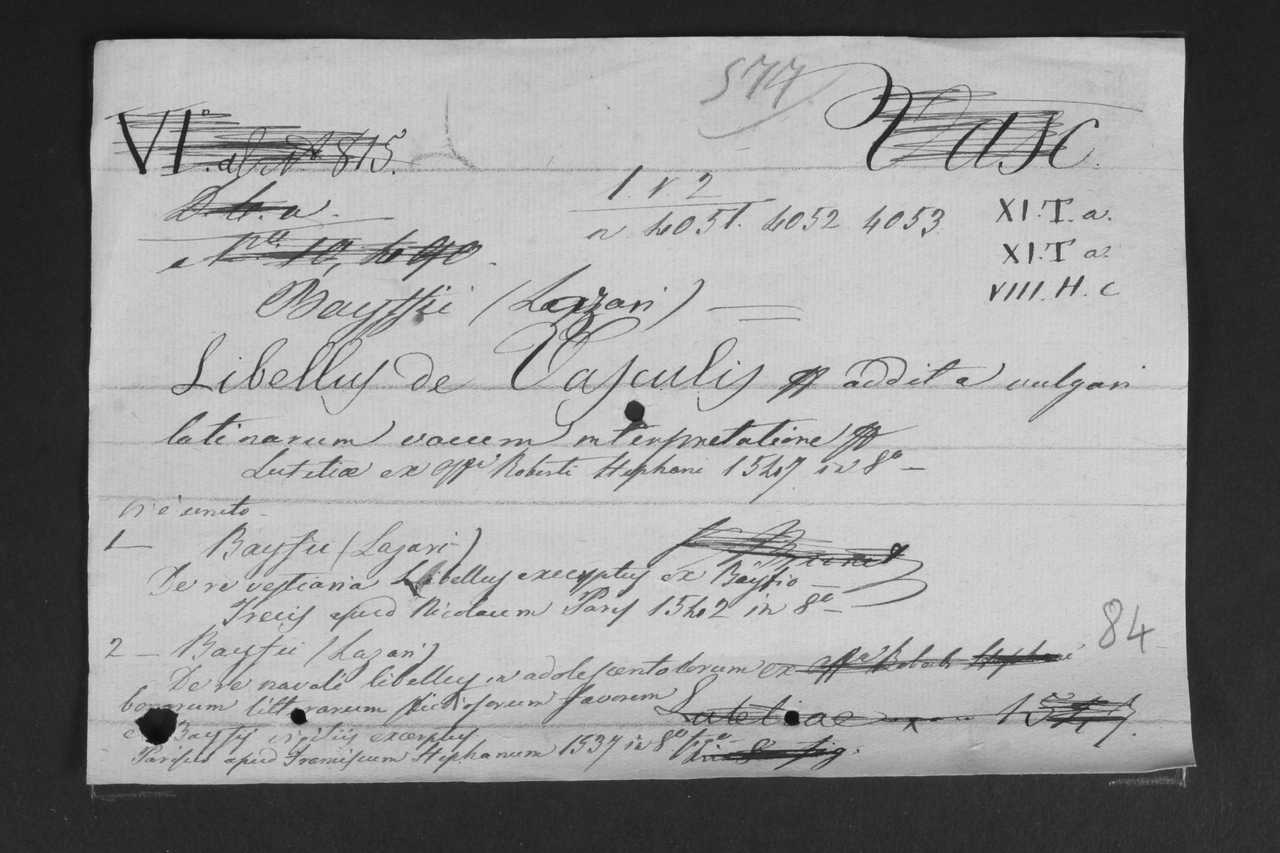 577
Vasc.
VI.° al N° 815.
D. 4. a.
1. v 2
n 4051. 4052 4053
XI. T. a.
XI. T a.
VIII. H. c
N.ro 10,490.
Bayffii (Lazari)
Libellus de Vasculis addita vulgari
latinarum vocum interpretatione
Lutetiæ ex offi Roberti Stephani 1547 in 8°
Vi è unito
1 — Bayfii (Lazari)
Brunet
De re vestiaria Libellus excerptus ex Bayfio
Trecis apud Nicolaum Paris 1542 in 8°
84
2 — Bayfii (Lazari)
De re navali libellus in adolescentulorum ex offna Roberti Stephani
bonarum litterarum studiosorum favorem
Lutetiae 1547.
e Bayfii vigiliis excerptus
Parisiis apud Franciscum Stephanum 1537 in 8°